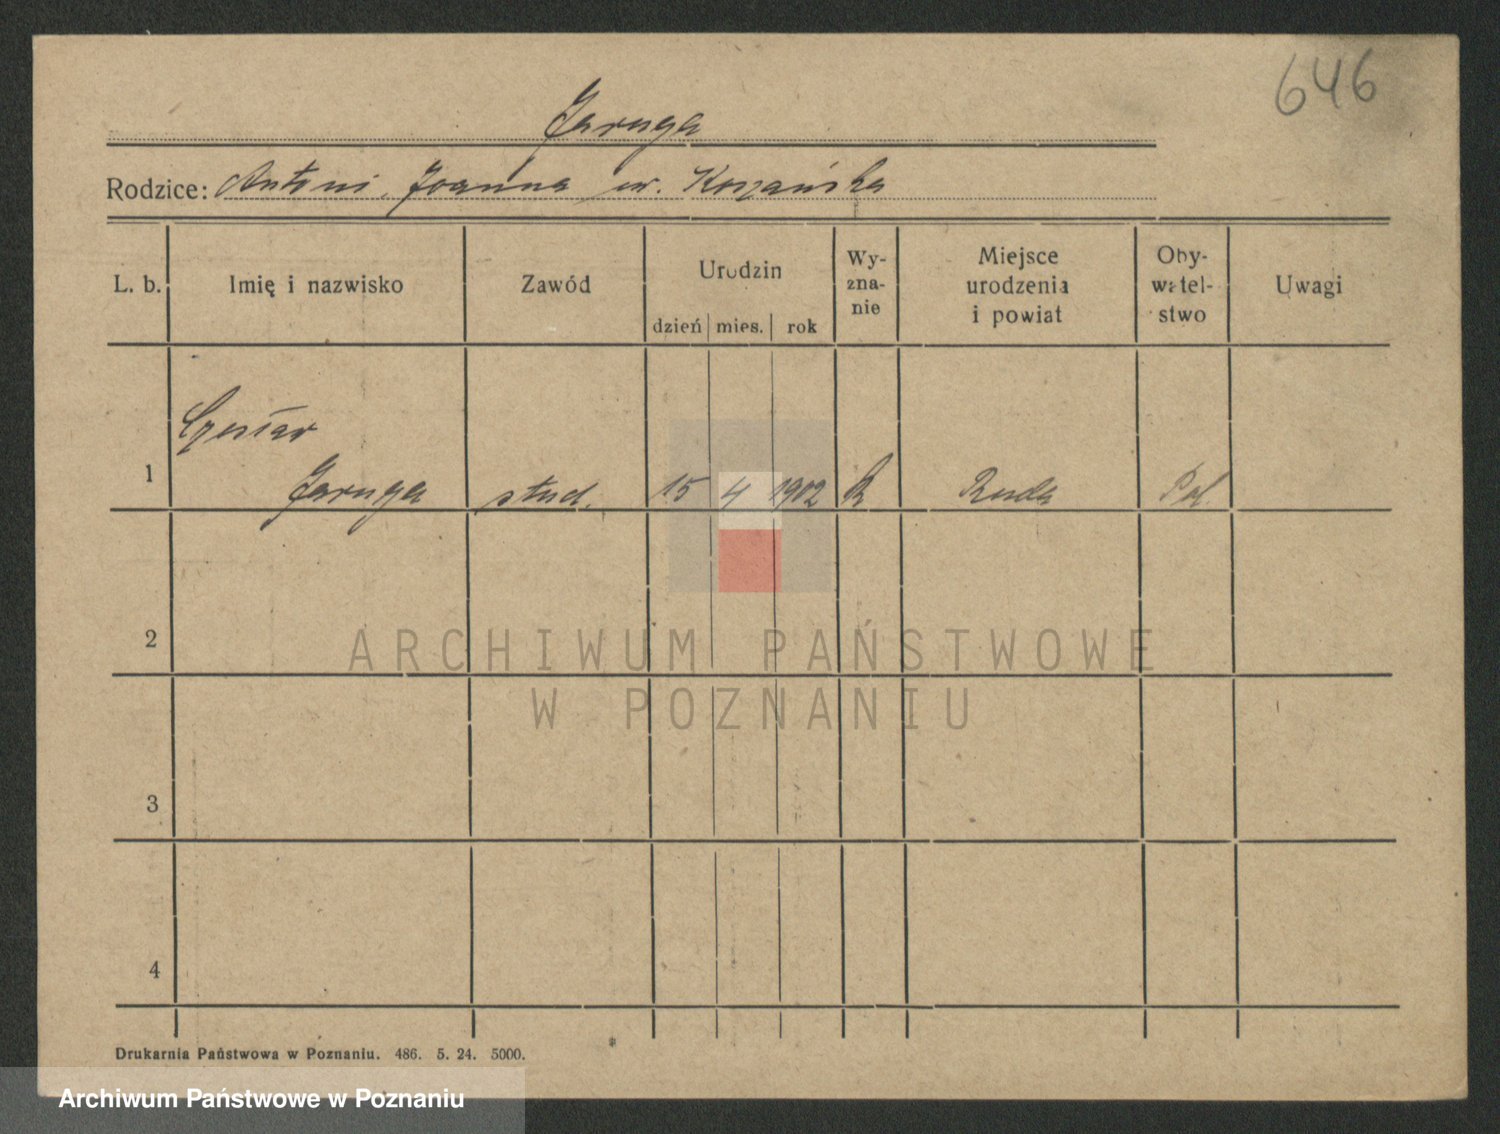 646
Jaruga
Rodzice: Antoni, Joanna ur. Koszańska
L. b. Imię i nazwisko Zawód Urodzin dzień mies. rok Wy-zna-nie Miejsce urodzenia i powiat Oby-watel-stwo Uwagi
Czesław
1 Jaruga stud. 15 4 1902 R Ruda Pol.
2
3
4
ARCHIWUM PAŃSTWOWE
W POZNANIU
Drukarnia Państwowa w Poznaniu. 486. 5. 24. 5000.
Archiwum Państwowe w Poznaniu